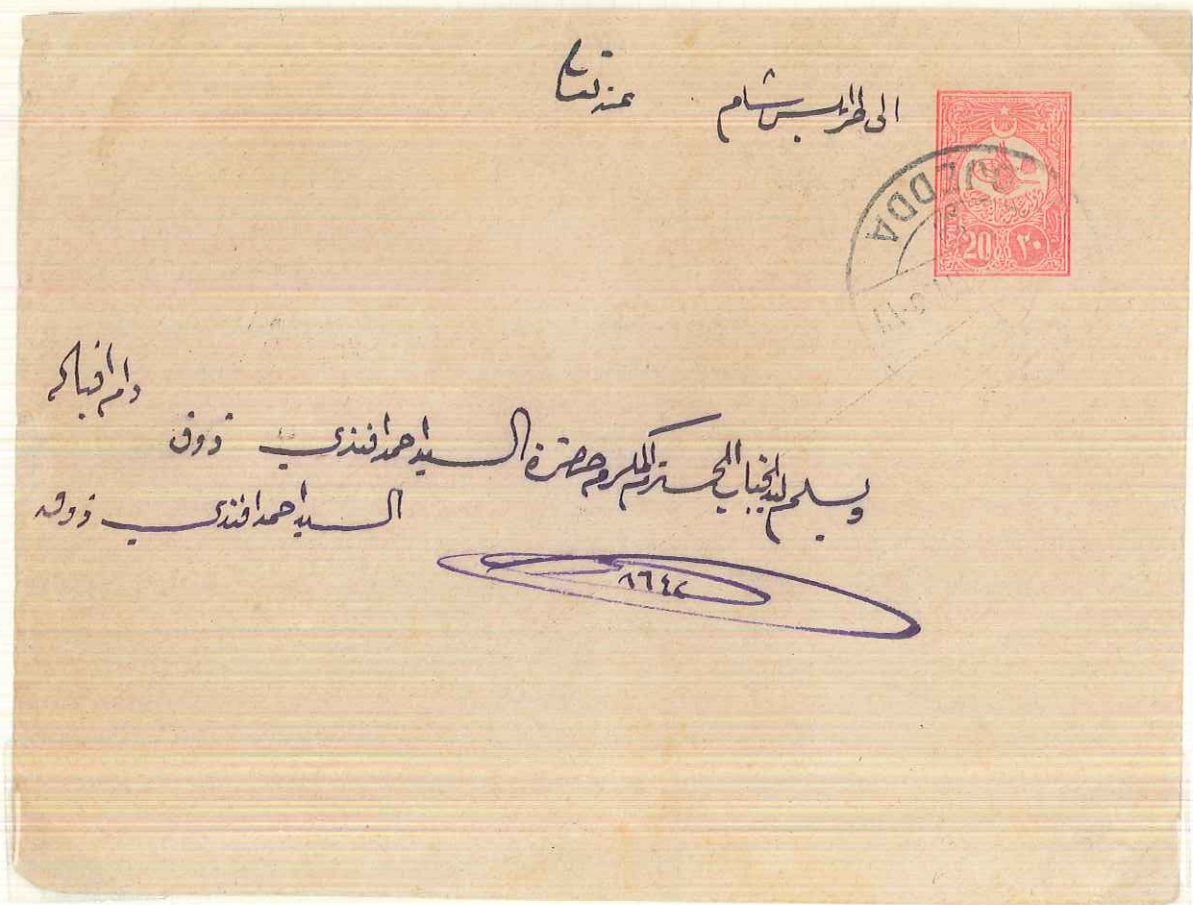 الى طرابلس شام
20 ٢٠
DJEDDA
دام اقباله
ويسلم ليد الجناب المحترم المكرم حضرة السيد احمد افندي ذوق
السيد احمد افندي ذوق
٨٦٤٢